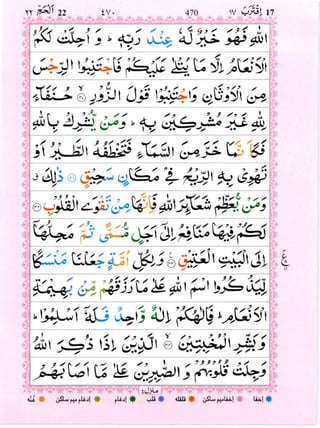 ٢٢ اَلْحَجّ 22 ٤٧٠ 470 ١٧ اِقْتَرَبَ 17
اللّٰهِ فَهُوَ خَيْرٌ لَّهٗ عِنْدَ رَبِّهٖ ؕ وَ اُحِلَّتْ لَكُمُ
الْاَنْعَامُ اِلَّا مَا يُتْلٰى عَلَيْكُمْ فَاجْتَنِبُوا الرِّجْسَ
مِنَ الْاَوْثَانِ وَاجْتَنِبُوْا قَوْلَ الزُّوْرِ ۙ‏﴿۳۰﴾ حُنَفَآءَ
لِلّٰهِ غَيْرَ مُشْرِكِيْنَ بِهٖ ؕ وَمَنْ يُّشْرِكْ بِاللّٰهِ
فَكَاَنَّمَا خَرَّ مِنَ السَّمَآءِ فَتَخْطَفُهُ الطَّيْرُ اَوْ
تَهْوِىْ بِهِ الرِّيْحُ فِىْ مَكَانٍ سَحِيْقٍ ﴿۳۱﴾ ذٰلِكَ ۗ
وَمَنْ يُّعَظِّمْ شَعَآئِرَ اللّٰهِ فَاِنَّهَا مِنْ تَقْوَى الْقُلُوْبِ ﴿۳۲﴾
لَكُمْ فِيْهَا مَنَافِعُ اِلٰٓى اَجَلٍ مُّسَمًّى ثُمَّ مَحِلُّهَاۤ
اِلَى الْبَيْتِ الْعَتِيْقِ ﴿۳۳﴾ وَلِكُلِّ اُمَّةٍ جَعَلْنَا مَنْسَكًا
لِّيَذْكُرُوا اسْمَ اللّٰهِ عَلٰى مَا رَزَقَهُمْ مِّنْۢ بَهِيْمَةِ
الْاَنْعَامِ ؕ فَاِلٰهُكُمْ اِلٰهٌ وَّاحِدٌ فَلَهٗۤ اَسْلِمُوْا ؕ
وَبَشِّرِ الْمُخْبِتِيْنَ ﴿۳۴﴾ الَّذِيْنَ اِذَا ذُكِرَ اللّٰهُ
وَجِلَتْ قُلُوْبُهُمْ وَالصّٰبِرِيْنَ عَلٰى مَاۤ اَصَابَهُمْ
منزل٤
اِخفا اِخفامیم ساکن قلقلہ قلب اِدغام اِدغام میم ساکن غُنّہ